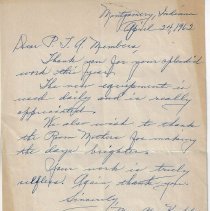 Montgomery, Indiana
April 24, 1962
Dear P. T. A. Members
Thank you for your splendid
work this year.
The new equipment is
used daily and is really
appreciated.
We also wish to thank
the Room Mothers for making
the days brighter.
Your work is truly
selfless. Again, thank you
Sincerely